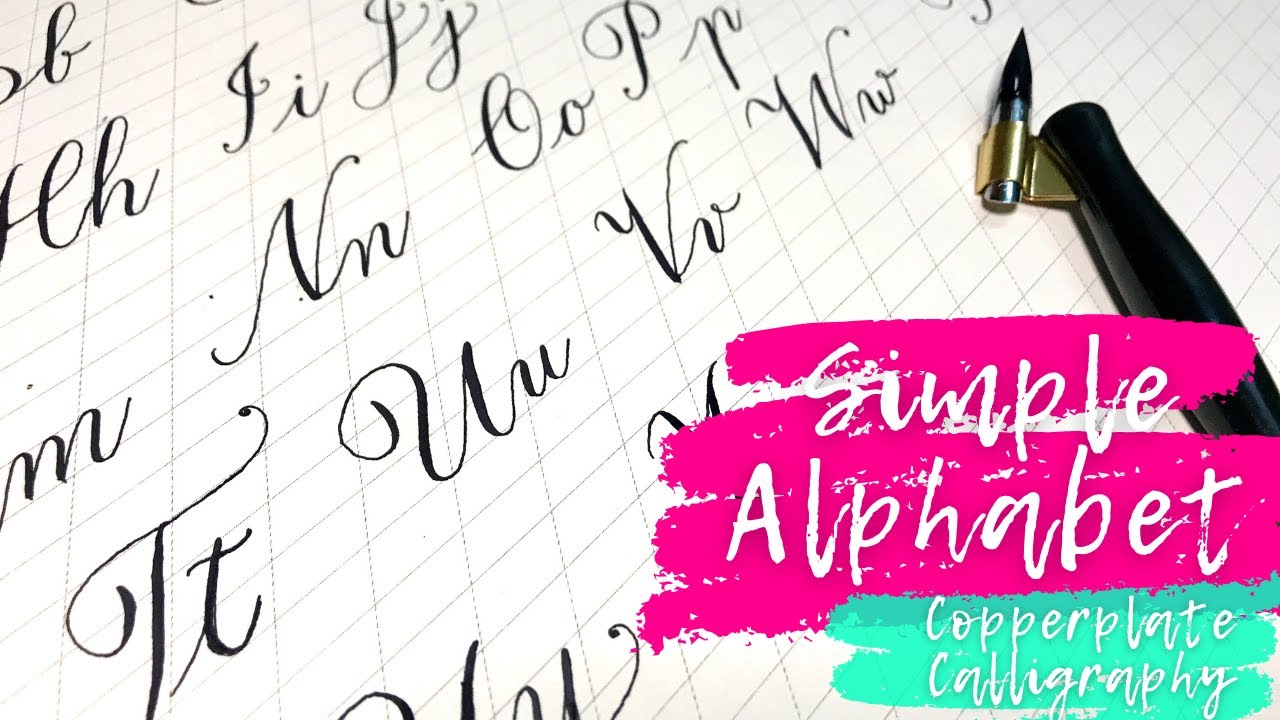 b
Hh Ii Jj
m Nn Oo Pp
Tt Uu Vv Ww
Simple
Alphabet
Copperplate
Calligraphy